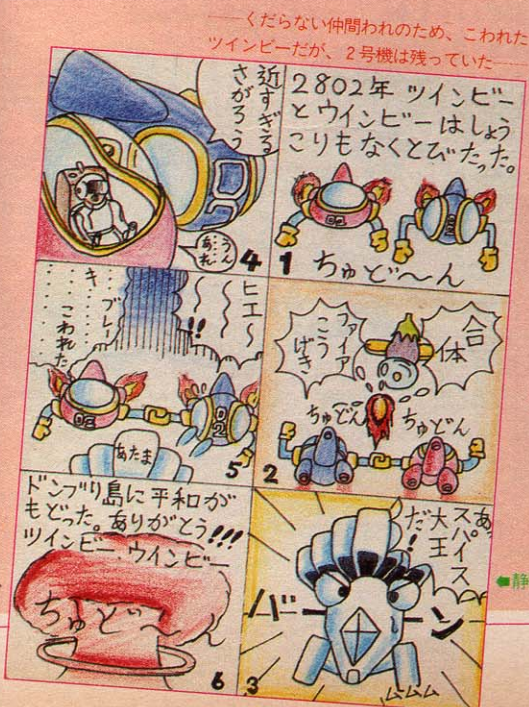 ――くだらない仲間われのため、こわれた
ツインビーだが、2号機は残っていた――
2802年 ツインビー
とウインビーはしょう
こりもなくとびたった。
ちゅど〜〜ん
1
合体
ファイア
こうげき
ちゅどん
ちゅどん
2
あ、
スパイス
大王
だ!
バーン
ムムム
3
近すぎる
さがろう
うん
あれ
4
ヒエ〜〜〜
!!
ブレーキ
こわれた
あたま
5
ドンブリ島に平和が
もどった。ありがとう!!!
ツインビー・ウインビー
ちゅど〜〜ん
6
静